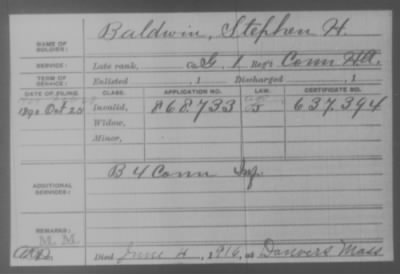 NAME OF SOLDIER: Baldwin, Stephen H.
SERVICE: Late rank, Co. G, 1 Reg't Conn H.A.
TERM OF SERVICE: Enlisted , 1 Discharged , 1
DATE OF FILING. CLASS. APPLICATION NO. LAW. CERTIFICATE NO.
1890 Oct 25 Invalid, 868.733 637.394
Widow,
Minor,
ADDITIONAL SERVICES: B 4 Conn Inf.
REMARKS: M. M.
Died June 4, 1916, at Danvers Mass